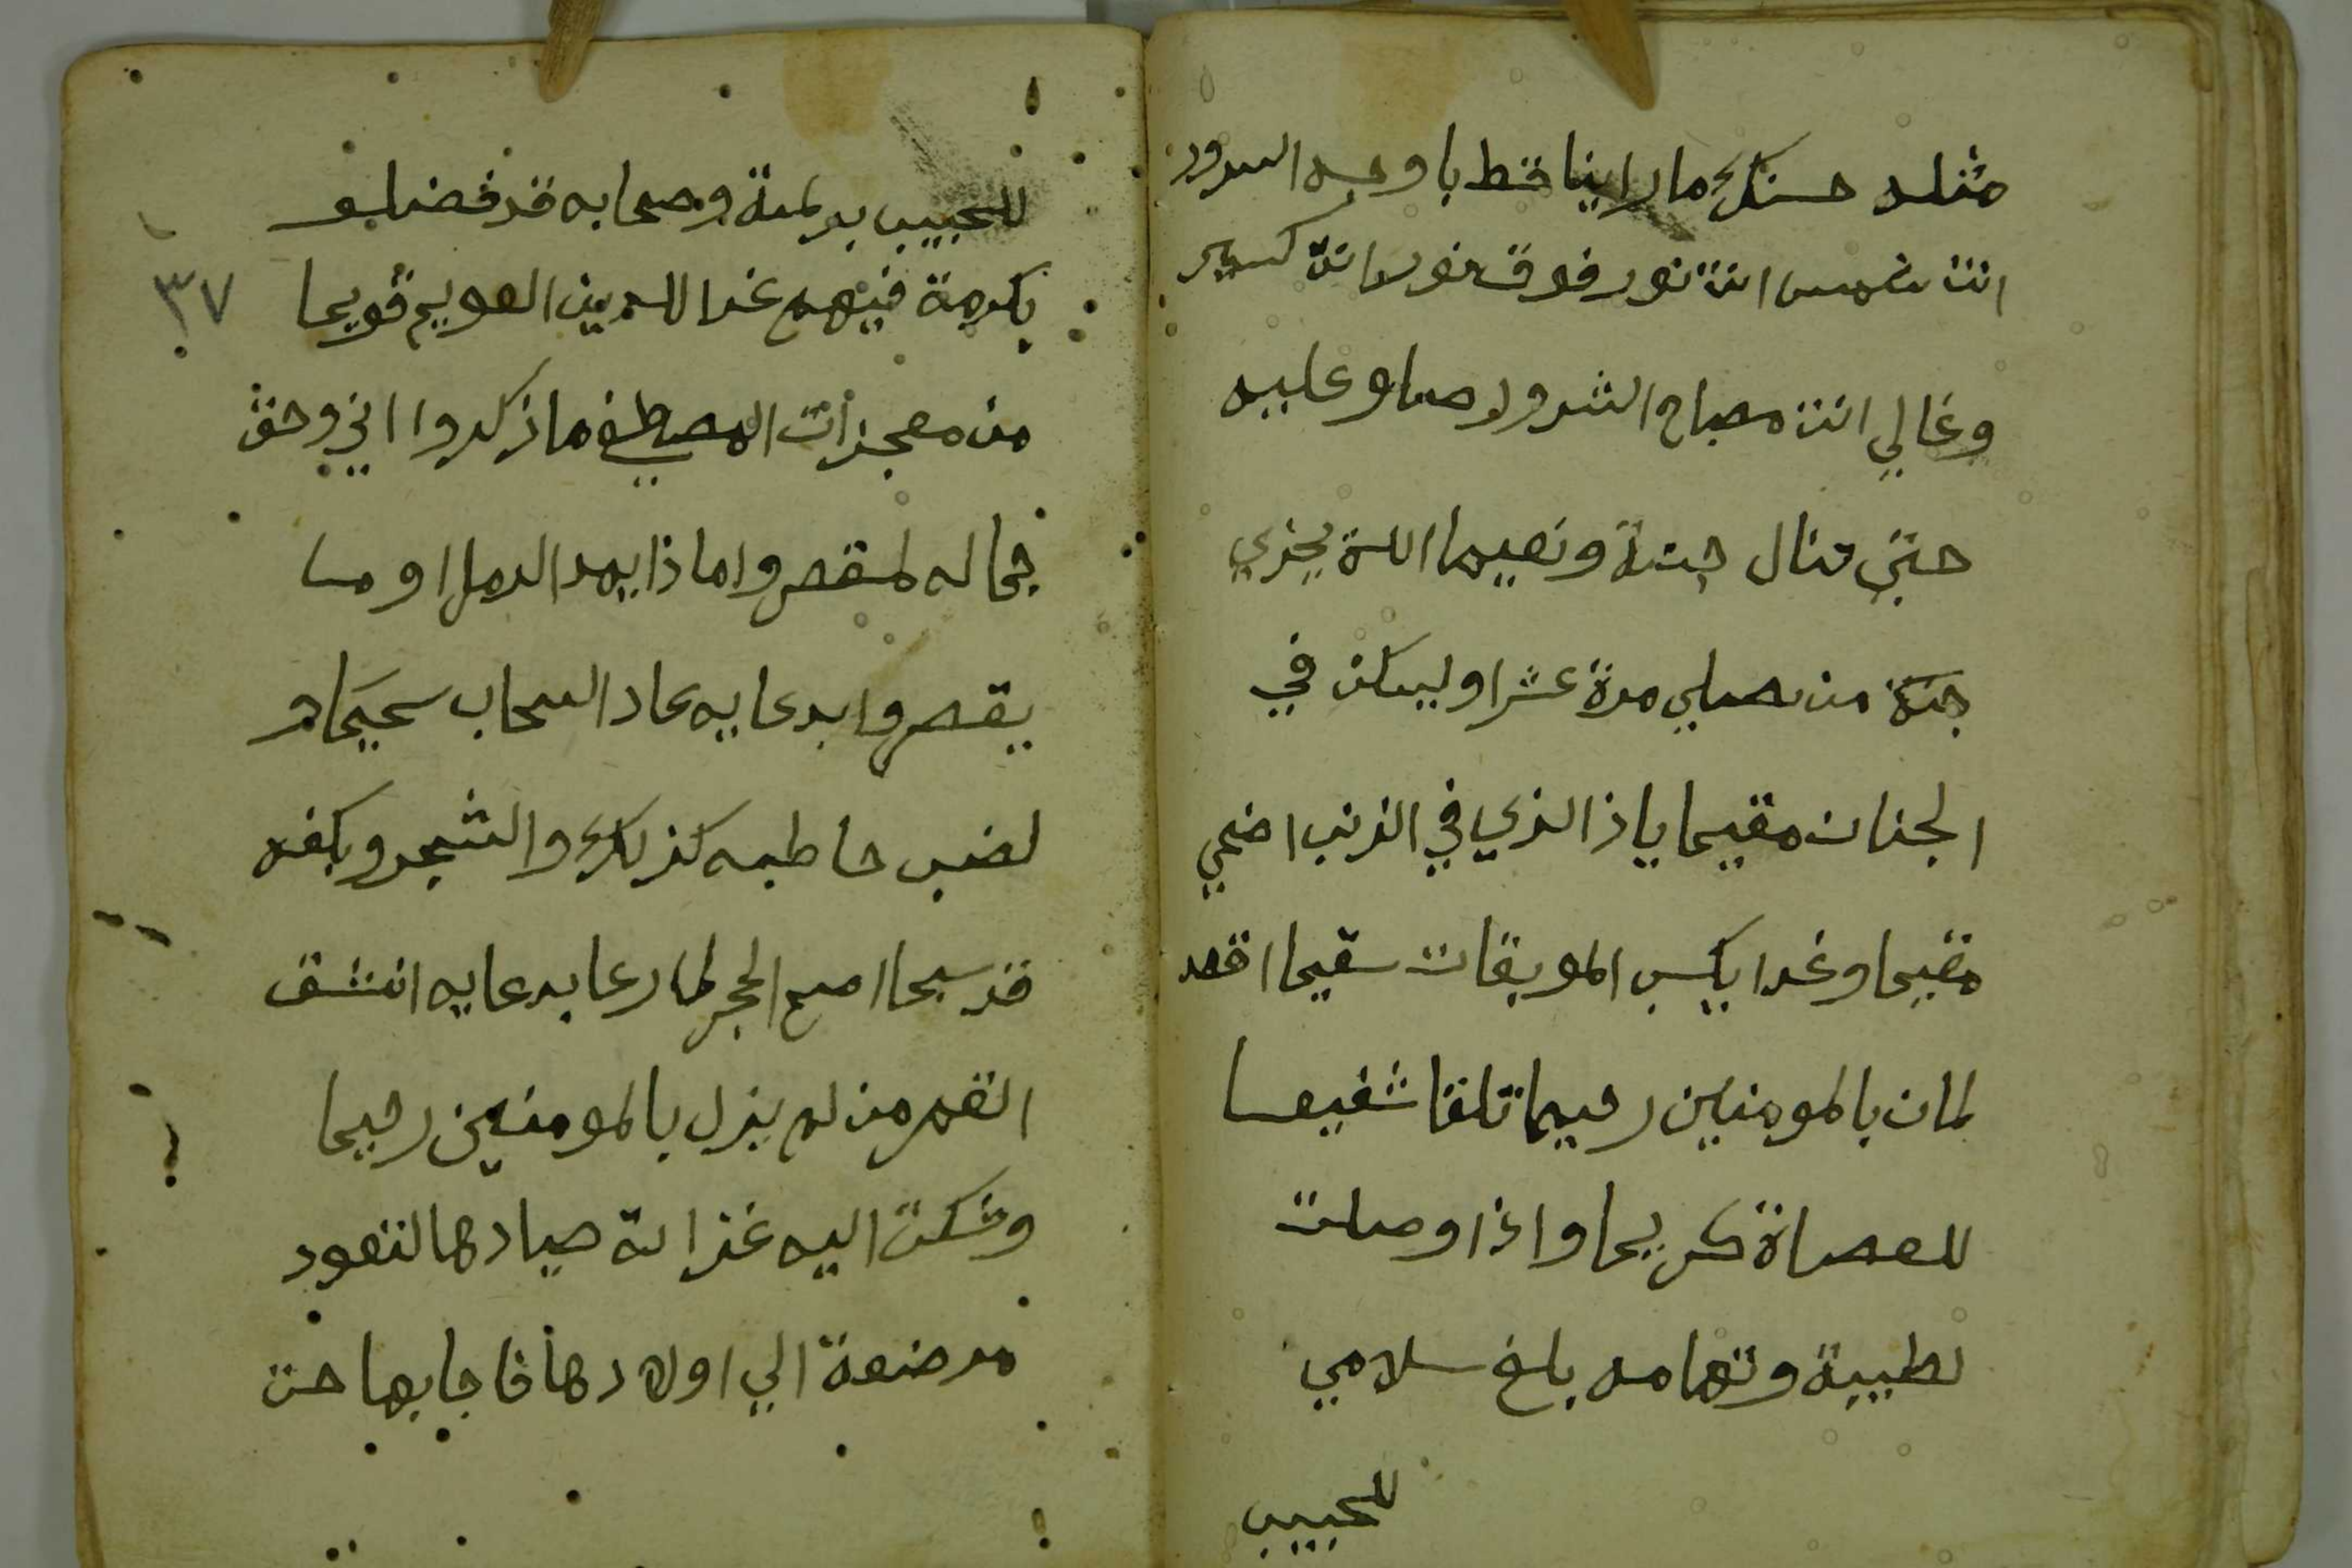 مثله حسنك ما راينا قط يا وجه السرور
انت شمس انت نور فوق نور انت اكسير
وغالي انت مصباح الشرور صلو عليه
حتى تنال جنة ونعيما الله يجزي
جنة من يصلي مرة عشرا ويسكن في
الجنات مقيما ياذا الذي في الذنب اضحي
مقيما وغدا بكسب الموبقات سقيما اقصد
لمن بالمومنين رحيما تلقا شفيعا
للعصاة كريما واذا وصلت
لطيبة وتهامه بلغ سلامي
للحبيب
للحبيب برمته وصحابه قد فضلو
بكرمة فيهم غدا الدين القويم قويما
من معجزات المصطفى ما ذكروا اني وحق
جماله لمقصروا ماذا يعد الرمل او ما
يقصروا بدعايه عاد السحاب سحيما و
لضب خاطبه كذلك والشجر وبكفه
قد سبحا اصم الحجر لما دعا بدعايه انشق
القمر من لم يزل بالمومنين رحيما
وشكت اليه غزالة صيادها لتعود
مرضعة الي اولادها فاجابها حن
٣٧